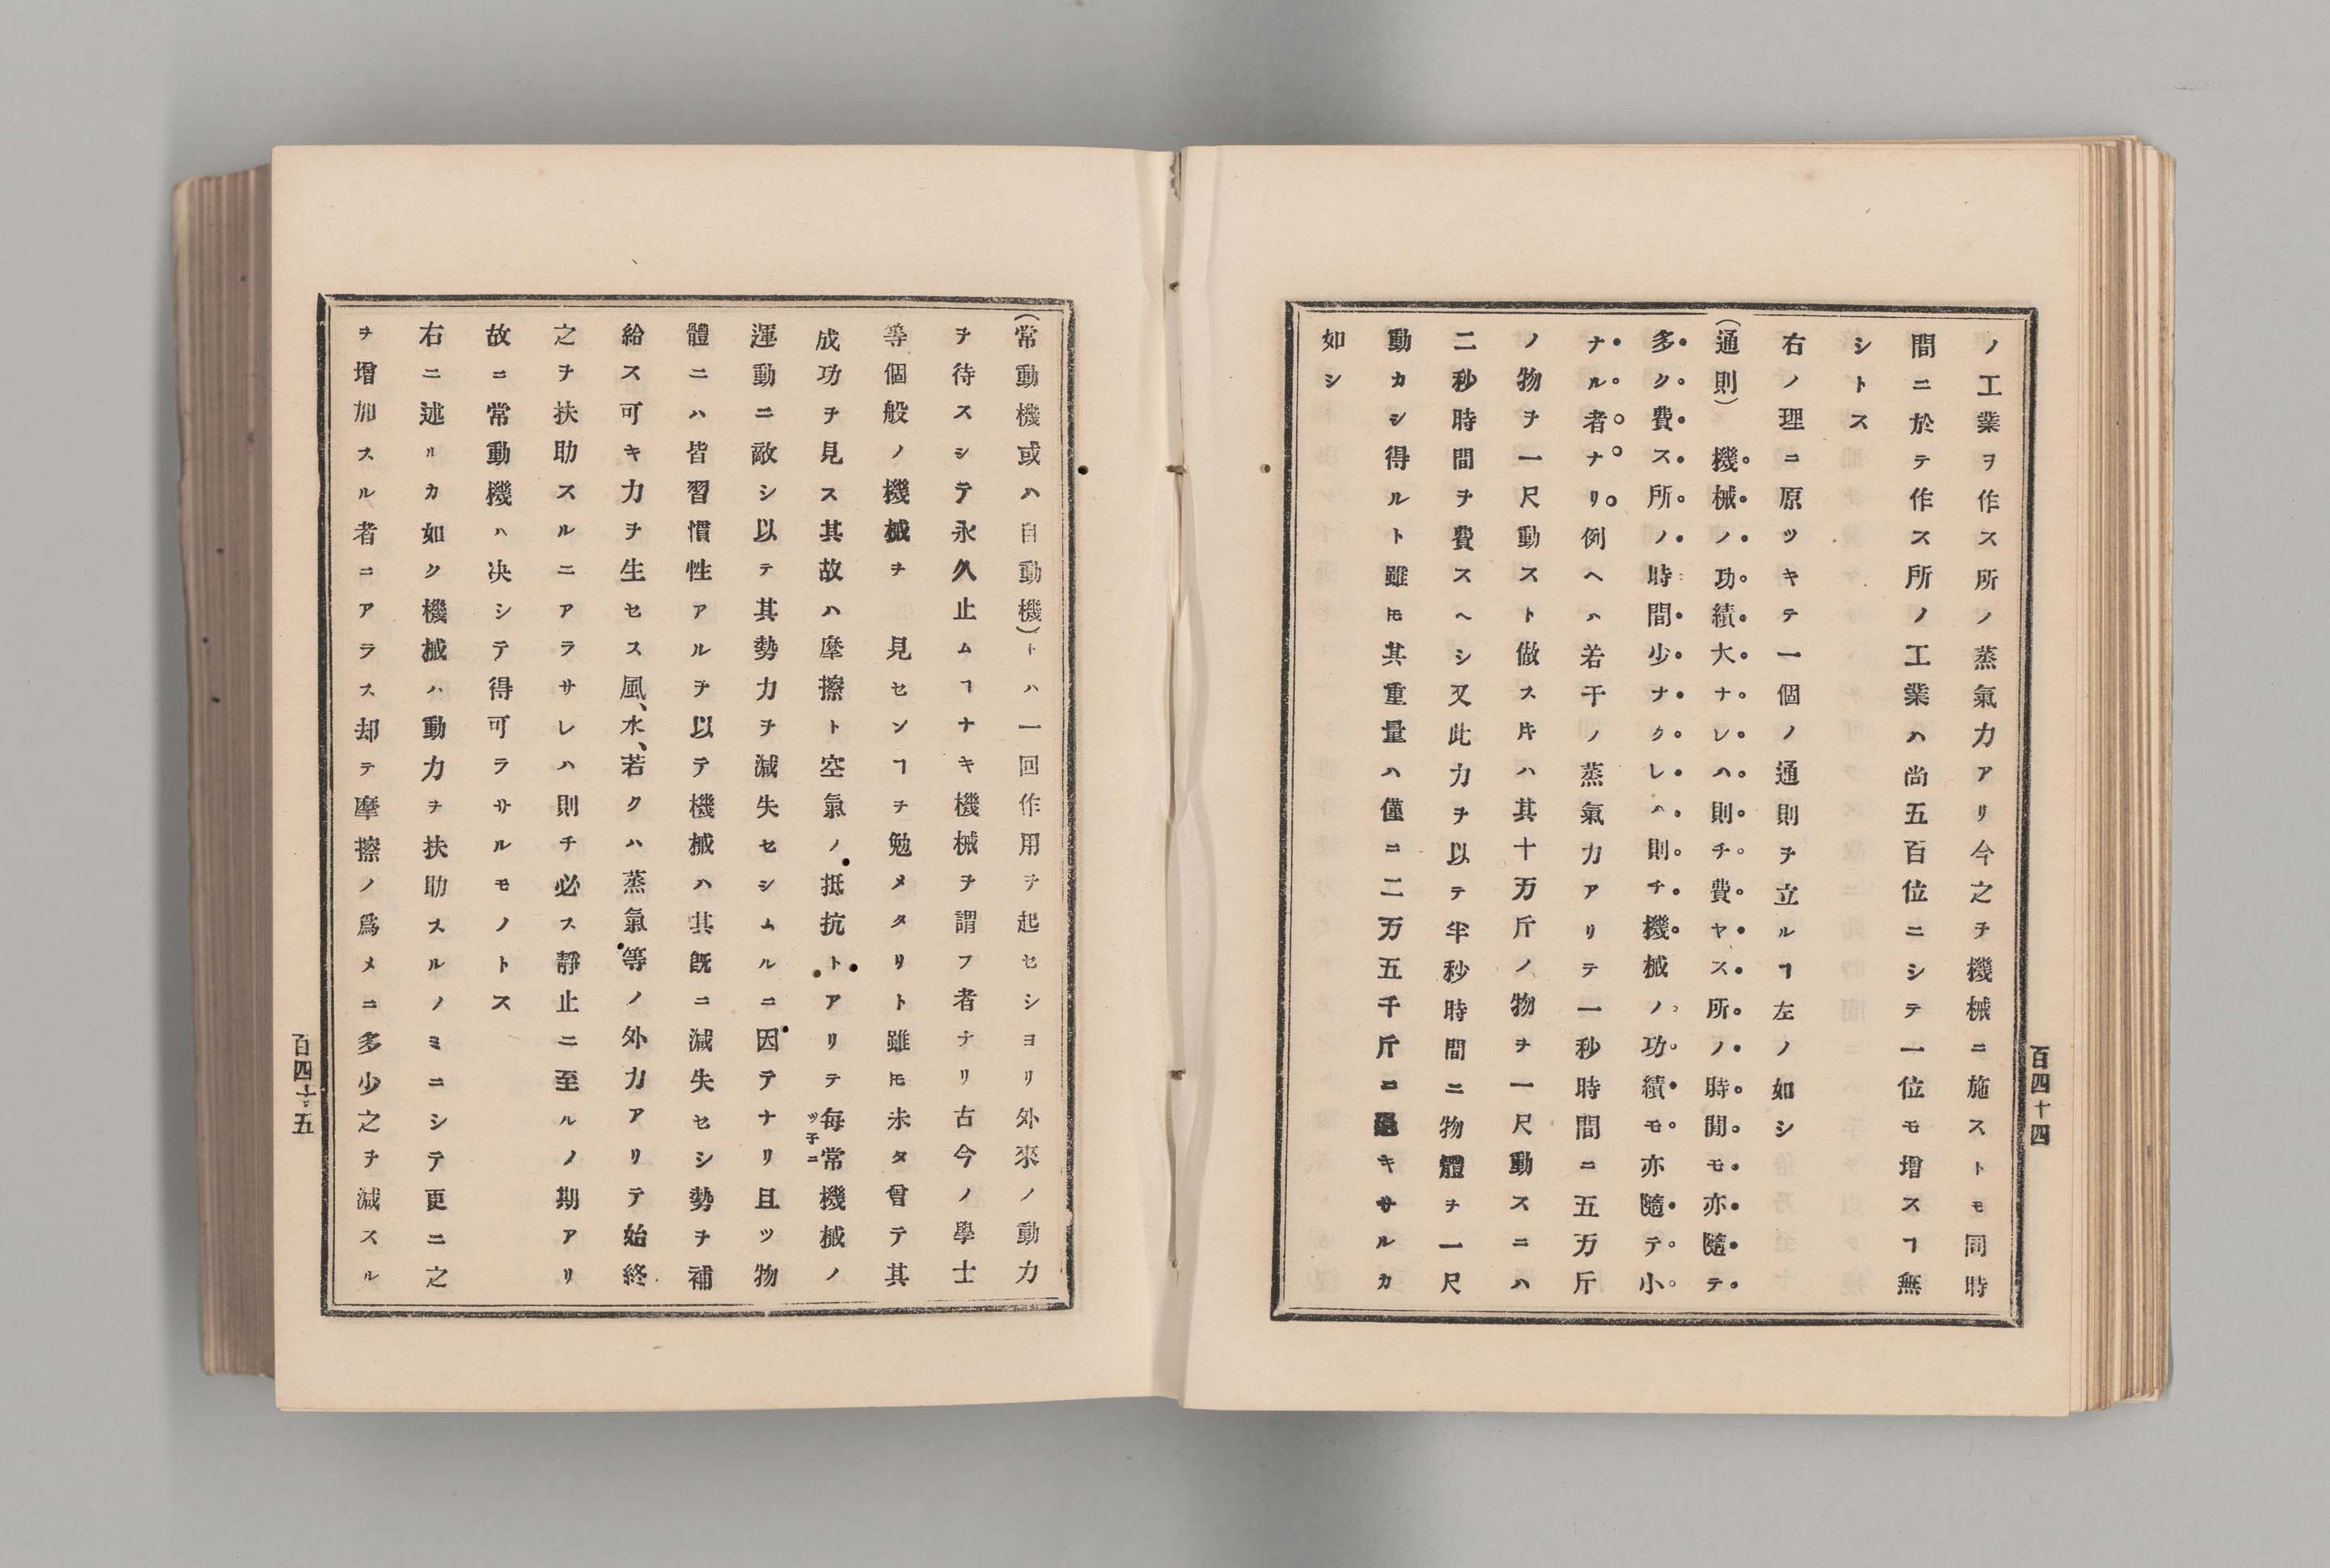 ノ工業ヲ作ス所ノ蒸氣力アリ今之ヲ機械ニ施ストモ同時
間ニ於テ作ス所ノ工業ハ尚五百位ニシテ一位モ增スヿ無
シトス
右ノ理ニ原ツキテ一個ノ通則ヲ立ルヿ左ノ如シ
(通則) 機械ノ功績大ナレハ則チ費ヤス所ノ時間モ亦隨テ
多ク費ス所ノ時間少ナクレハ則チ機械ノ功績モ亦隨テ小
ナル者ナリ例ヘハ若干ノ蒸氣力アリテ一秒時間ニ五万斤
ノ物ヲ一尺動スト做スキハ其十万斤ノ物ヲ一尺動スニハ
二秒時間ヲ費スヘシ又此力ヲ以テ半秒時間ニ物體ヲ一尺
動カシ得ルト雖𪜈其重量ハ僅ニ二万五千斤ニキサルカ
如シ
百四十四
(常動機或ハ自動機)トハ一回作用ヲ起セシヨリ外來ノ動力
ヲ待スシテ永久止ムヿナキ機械ヲ謂フ者ナリ古今ノ學士
等個般ノ機械ヲ見センヿヲ勉メタリト雖𪜈未タ曾テ其
成功ヲ見ス其故ハ摩擦ト空氣ノ抵抗トアリテ每常機械ノ
ツ子ニ
運動ニ敵シ以テ其勢力ヲ減失セシムルニ因テナリ且ツ物
體ニハ皆習慣性アルヲ以テ機械ハ其既ニ減失セシ勢ヲ補
給ス可キ力ヲ生セス風、水、若クハ蒸氣等ノ外力アリテ始終
之ヲ扶助スルニアラサレハ則チ必ス靜止ニ至ルノ期アリ
故ニ常動機ハ決シテ得可ラサルモノトス
右ニ述ルカ如ク機械ハ動力ヲ扶助スルノミニシテ更ニ之
ヲ增加スル者ニアラス却テ摩擦ノ爲メニ多少之ヲ減スル
百四十五